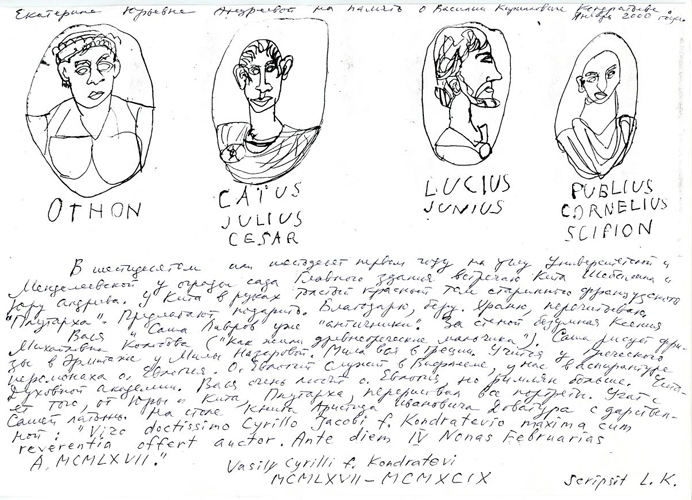 Екатерине Юрьевне Андреевой на память о Василии Кирилловиче Кондратьеве.
Января 2000 года
OTHON
CAÏUS
JULIUS
CESAR
LUCIUS
JUNIUS
PUBLIUS
CORNELIUS
SCIPION
В шестидесятом или шестьдесят первом году на углу Университетской и
Менделеевской у ограды сада Главного здания встречаю Кита
Юру Андреева. У Кита в руках толстый красный том старинного французского
"Плутарха". Предлагают подарить. Благодарю, беру. Храню, перечитываю.
Вася и Саша Лавров уже "античники". За стеной безумная Ксения
Михайловна Колобова ("как жили древнегреческие мальчики"). Саша рисует
зы в Эрмитаже у Милы Назаровой. Мила вся в Греции. Учится у греческого
иеромонаха о. Евлогия. О. Евлогий служит в у нас в аспирантуре
Духовной академии. Вася очень любит о. Евлогия, но римлян больше. Чита-
ет того от Юры и Кита, Плутарха, перерисовал все портреты. Учат с
Сашей латынь. На столе книга Аристида Ивановича Доватура с дарствен-
ной: "Viro doctissimo Cyrillo Jacobi f. Kondratevio maxima cum
reverentia offert auctor. Ante diem IV Nonas Februarias
A. MCMLXVII."
Vasily Cyrilli f. Kondratevi
MCMLXVII – MCMXCIX
Scripsit L. K.